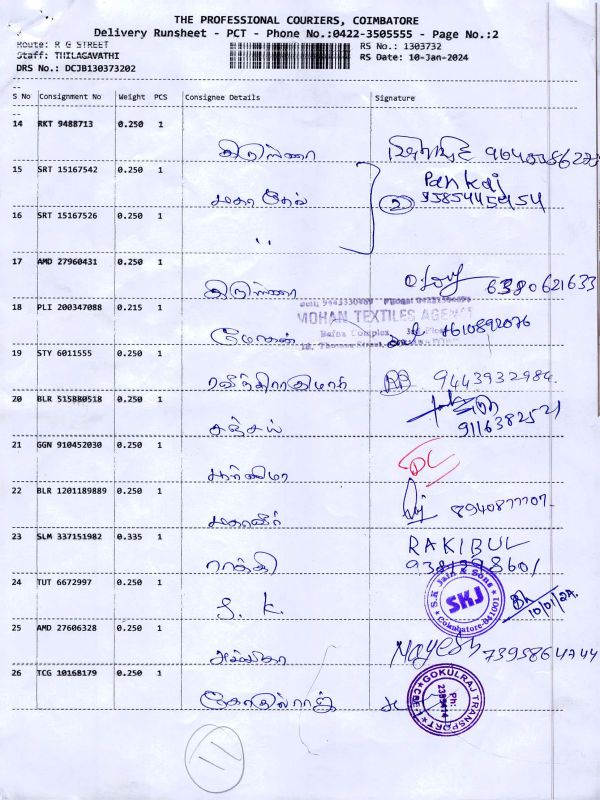 THE PROFESSIONAL COURIERS, COIMBATORE
Delivery Runsheet - PCT - Phone No.:0422-3505555 - Page No.:2
Route: R G STREET
Staff: THILAGAVATHI
DRS No.: DCJB130373202
RS No.: 1303732
RS Date: 10-Jan-2024
S No Consignment No Weight PCS Consignee Details Signature
14 RKT 9488713 0.250 1
15 SRT 15167542 0.250 1
Pankaj
மகாதேவ் 2 9585445454
16 SRT 15167526 0.250 1
"
17 AMD 27960431 0.250 1
6380621633
18 PLI 200347088 0.215 1
MOHAN TEXTILES AGENCY
மோகன்
19 STY 6011555 0.250 1
9443932984
20 BLR 515880518 0.250 1
சஞ்சய் 9116382521
21 GGN 910452030 0.250 1
DC
22 BLR 1201189889 0.250 1
மகாவீர் 8940877707
23 SLM 337151982 0.335 1
RAKIBUL
ராக்கி
24 TUT 6672997 0.250 1
S.K Jain & Sons
SKJ
Coimbatore-641001
S. K. 10/01/24
25 AMD 27606328 0.250 1
அம்பிகா Mayesh 7395864744
26 TCG 10168179 0.250 1
GOKULRAJ TRANSPORT
கோகுல்ராஜ்
11